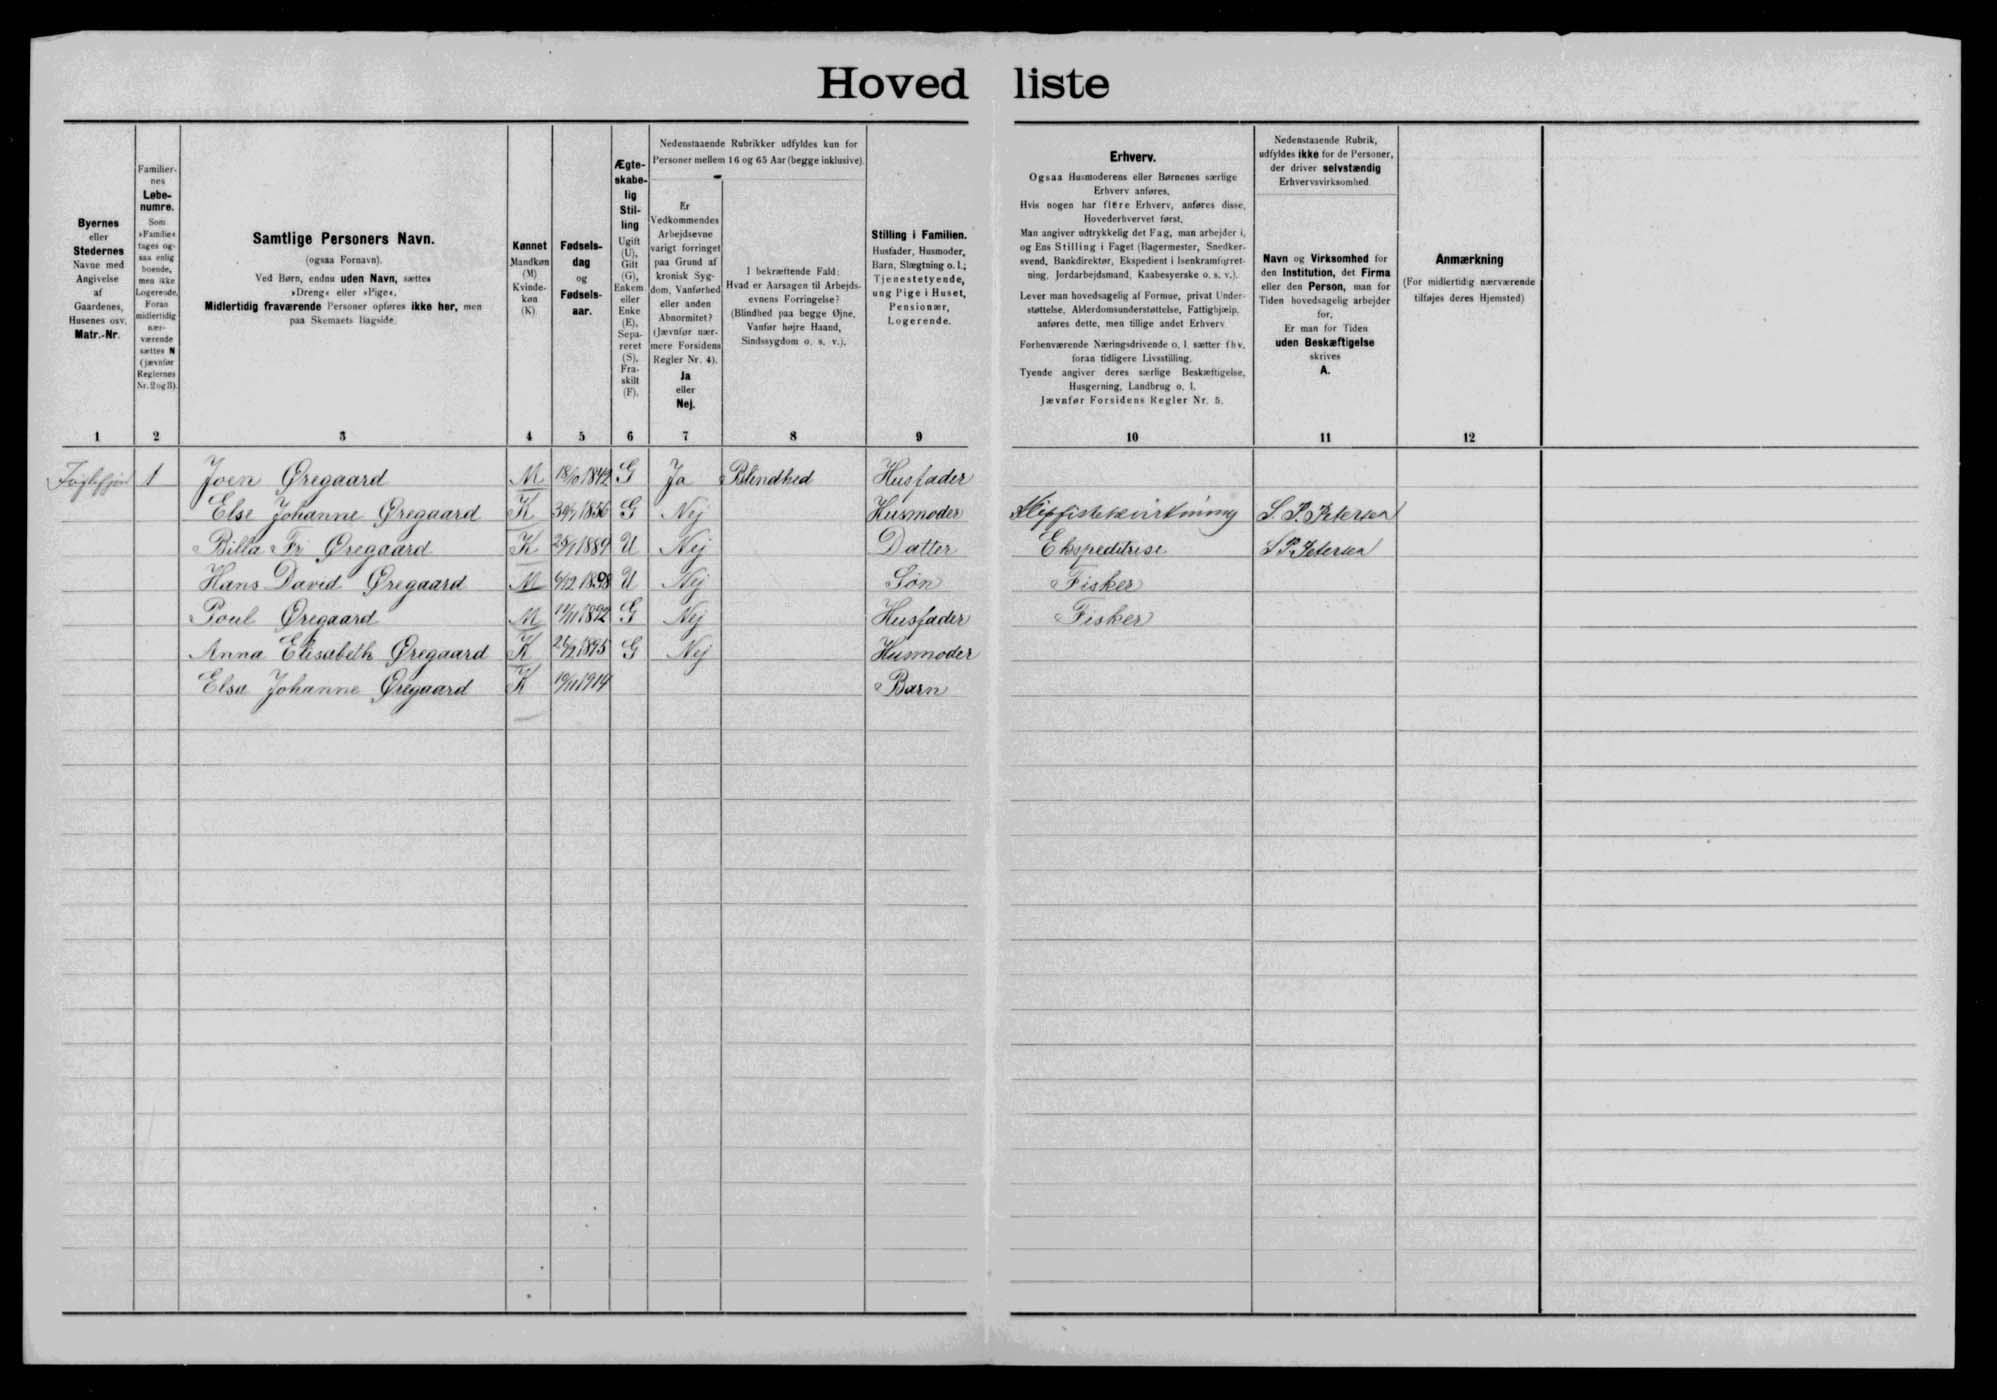 Hoved liste
Byernes
eller
Stedernes
Navne med
Angivelse
af
Gaardenes,
Husenes osv.
Matr.-Nr.
Familier-
nes
Løbe-
numre.
Som
»Familie«
tages og-
saa enlig
boende,
men ikke
Logerende.
Foran
midlertidig
nær-
værende
sættes N
(jævnfør
Reglernes
Nr. 2 og 3).
Samtlige Personers Navn.
(ogsaa Fornavn).
Ved Børn, endnu uden Navn, sættes
»Dreng« eller »Pige«,
Midlertidig fraværende Personer opføres ikke her, men
paa Skemaets Bagside.
Kønnet
Mandkøn
(M)
Kvinde-
køn
(K)
Fødsels-
dag
og
Fødsels-
aar.
Ægte-
skabe-
lig
Stil-
ling
Ugift
(U),
Gift
(G),
Enkem.
eller
Enke
(E),
Sepa-
reret
(S),
Fra-
skilt
(F).
Nedenstaaende Rubrikker udfyldes kun for
Personer mellem 16 og 65 Aar (begge inklusive).
Er
Vedkommendes
Arbejdsevne
varigt forringet
paa Grund af
kronisk Syg-
dom, Vanførhed
eller anden
Abnormitet?
(Jævnfør nær-
mere Forsidens
Regler Nr. 4).
Ja
eller
Nej.
I bekræftende Fald:
Hvad er Aarsagen til Arbejds-
evnens Forringelse?
(Blindhed paa begge Øjne,
Vanfør højre Haand,
Sindssygdom o. s. v.).
Stilling i Familien.
Husfader, Husmoder,
Barn, Slægtning o. l.;
Tjenestetyende,
ung Pige i Huset,
Pensionær,
Logerende.
Erhverv.
Ogsaa Husmoderens eller Børnenes særlige
Erhverv anføres,
Hvis nogen har flere Erhverv, anføres disse,
Hovederhvervet først.
Man angiver udtrykkelig det Fag, man arbejder i,
og Ens Stilling i Faget (Bagermester, Snedker-
svend, Bankdirektør, Ekspedient i Isenkramforret-
ning, Jordarbejdsmand, Kaabesyerske o. s. v.).
Lever man hovedsagelig af Formue, privat Under-
støttelse, Alderdomsunderstøttelse, Fattighjælp,
anføres dette, men tillige andet Erhverv
Forhenværende Næringsdrivende o. l. sætter fhv.
foran tidligere Livsstilling.
Tyende angiver deres særlige Beskæftigelse,
Husgerning, Landbrug o. l.
Jævnfør Forsidens Regler Nr. 5.
Nedenstaaende Rubrik,
udfyldes ikke for de Personer,
der driver selvstændig
Erhvervsvirksomhed.
Navn og Virksomhed for
den Institution, det Firma
eller den Person, man for
Tiden hovedsagelig arbejder
for.
Er man for Tiden
uden Beskæftigelse
skrives
A.
Anmærkning
(For midlertidig nærværende
tilføjes deres Hjemsted)
1 2 3 4 5 6 7 8 9 10 11 12
Fuglefjord 1 Joen Øregaard M 18/10 1842 G Ja Blindhed Husfader
Else Johanne Øregaard K 1856 G Nej Husmoder Klipfiskevirkning S. P. Petersen
Billa Fr Øregaard K 1889 U Nej Datter Ekspeditrise S P. Petersen
Hans David Øregaard M 6/12 1898 U Nej Søn Fisker
Poul Øregaard M 1892 G Nej Husfader Fisker
Anna Elisabeth Øregaard K 1895 G Nej Husmoder
Elsa Johanne Øregaard K 19/11 1914 Barn